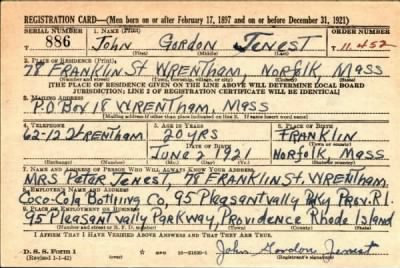 REGISTRATION CARD—(Men born on or after February 17, 1897 and on or before December 31, 1921)
SERIAL NUMBER 1. NAME (Print) ORDER NUMBER
886 John Gordon Jenest T 11,452
(First) (Middle) (Last)
2. PLACE OF RESIDENCE (Print)
78 FRANKLIN St WRENTHAM, NORFOLK, MASS
(Number and street) (Town, township, village, or city) (County) (State)
[THE PLACE OF RESIDENCE GIVEN ON THE LINE ABOVE WILL DETERMINE LOCAL BOARD
JURISDICTION; LINE 2 OF REGISTRATION CERTIFICATE WILL BE IDENTICAL]
3. MAILING ADDRESS
P.O Box 18 WRENTHAM, MASS
[Mailing address if other than place indicated on line 2. If same insert word same]
4. TELEPHONE 5. AGE IN YEARS 6. PLACE OF BIRTH
62-12 Wrentham 20 yrs FRANKLIN
DATE OF BIRTH (Town or county)
June 2 1921 NORFOLK, MASS
(Exchange) (Number) (Mo.) (Day) (Yr.) (State or country)
7. NAME AND ADDRESS OF PERSON WHO WILL ALWAYS KNOW YOUR ADDRESS
MRS Peter Jenest, 78 FRANKLIN St. WRENTHAM.
8. EMPLOYER'S NAME AND ADDRESS
Coca-Cola Bottling Co, 95 Pleasantvally Pkwy Prov. R.I.
9. PLACE OF EMPLOYMENT OR BUSINESS
95 Pleasantvally Parkway, Providence Rhode Island
(Number and street or R. F. D. number) (Town) (County) (State)
I AFFIRM THAT I HAVE VERIFIED ABOVE ANSWERS AND THAT THEY ARE TRUE.
D. S. S. Form 1
(Revised 1-1-42) John Gordon Jenest